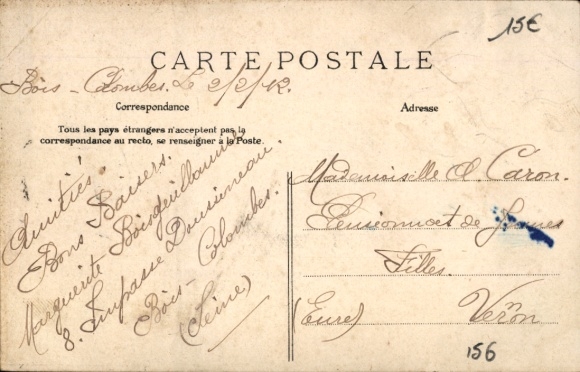 15€
CARTE POSTALE
Bois-Colombes. Le 2/2/12.
Correspondance
Adresse
Tous les pays étrangers n'acceptent pas la
correspondance au recto, se renseigner à la Poste.
Amitiés.
Bons Baisers.
Marguerite Boisguillaume
8. Impasse
Bois-Colombes.
(Seine)
Mademoiselle A. Caron.
Pensionnat de Jeunes
Filles.
(Eure) Vernon
156